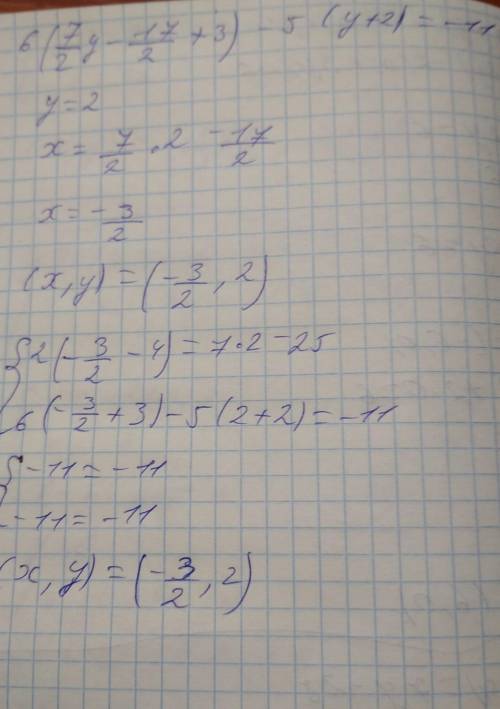 6(7/2 y - 17/2 + 3) - 5 (y+2) = -11
y = 2
x = 7/2 · 2 - 17/2
x = - 3/2
(x, y) = (- 3/2 , 2)
{ 2(- 3/2 - 4) = 7·2 - 25
6(- 3/2 + 3) - 5(2+2) = -11
{ -11 = -11
-11 = -11
(x, y) = (- 3/2 , 2)